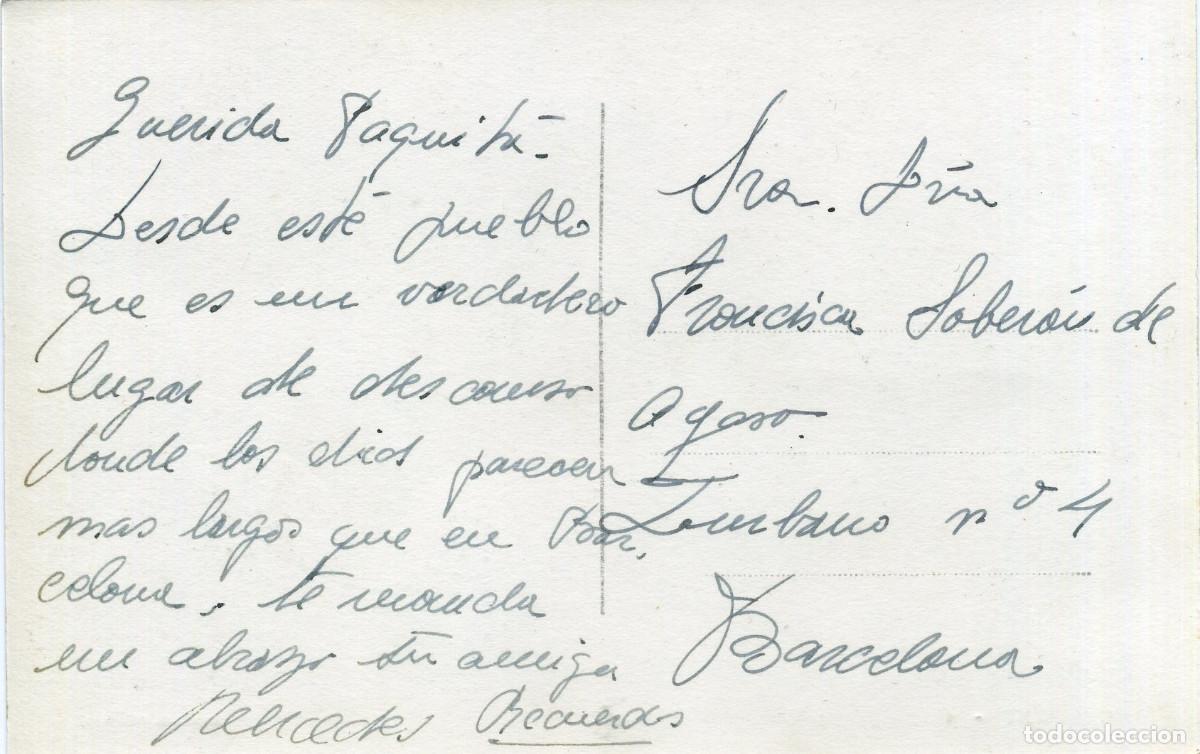 Querida Paquitá-
Desde esté pueblo
que es un verdadero
lugar de descanso
donde los dias parecen
mas largos que en Bar.
celona, te manda
un abrazo tu amiga
Mercedes Recuerdos
Sra. Dña
Francisca Soberón de
Agaso.
Zurbano nº 4
Barcelona
todocoleccion